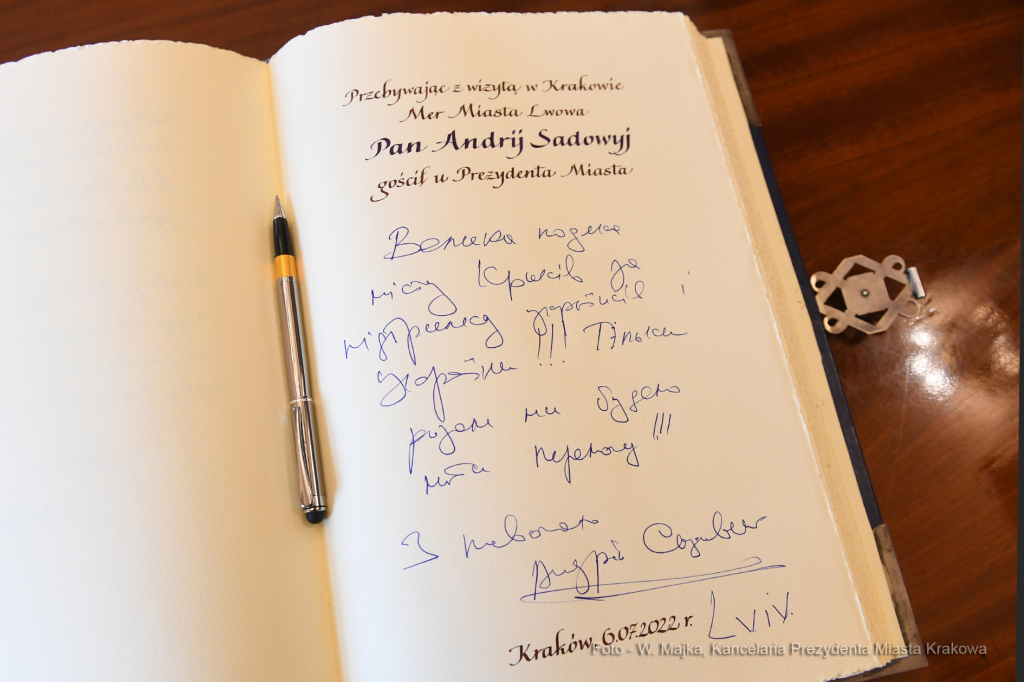 Przebywając z wizytą w Krakowie
Mer Miasta Lwowa
Pan Andrij Sadowyj
gościł u Prezydenta Miasta
Велика подяка
місту Краків за
підтримку українців і
України !!! Тільки
разом ми будемо
мати перемогу !!!
З повагою
Андрій Садовий
Lviv.
Kraków, 6.07.2022 r.
Foto - W. Majka, Kancelaria Prezydenta Miasta Krakowa